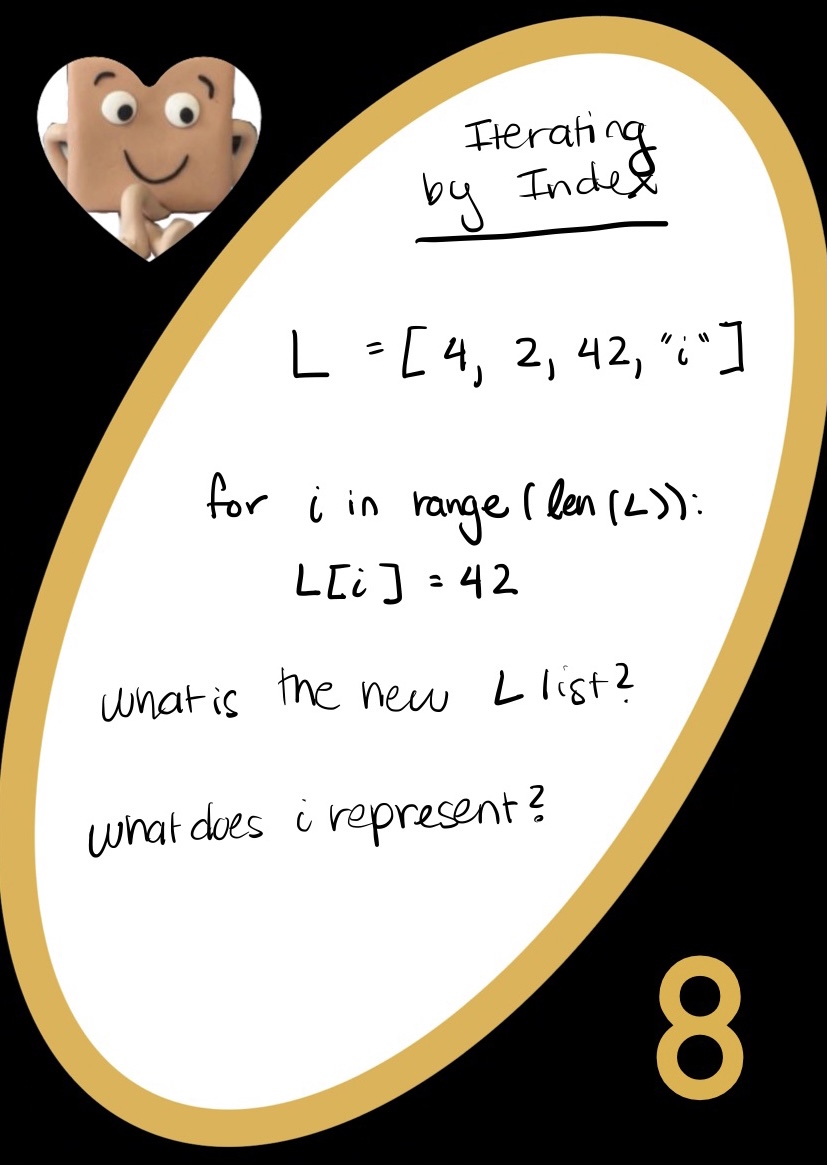 Iterating
by Index
L = [4, 2, 42, "i"]
for i in range(len(L)):
L[i] = 42
what is the new L list?
what does i represent?
8